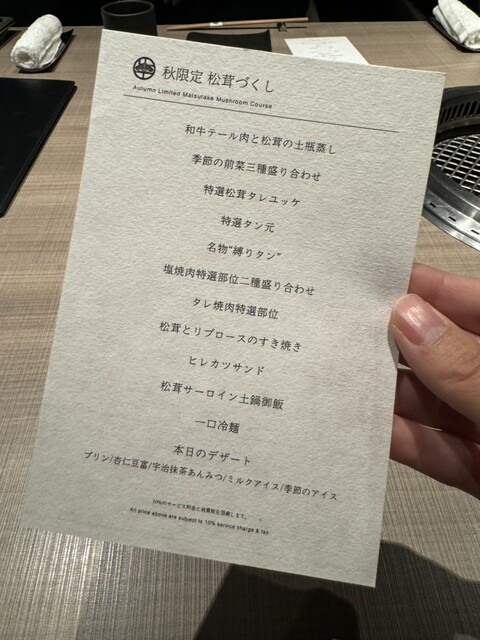 秋限定 松茸づくし
Autumn Limited Matsutake Mushroom Course
和牛テール肉と松茸の土瓶蒸し
季節の前菜三種盛り合わせ
特選松茸タレユッケ
特選タン元
名物“縛りタン”
塩焼肉特選部位二種盛り合わせ
タレ焼肉特選部位
松茸とリブロースのすき焼き
ヒレカツサンド
松茸サーロイン土鍋御飯
一口冷麺
本日のデザート
プリン/杏仁豆富/宇治抹茶あんみつ/ミルクアイス/季節のアイス
10%のサービス料金と消費税を頂戴します。
All price above are subject to 10% service charge & tax